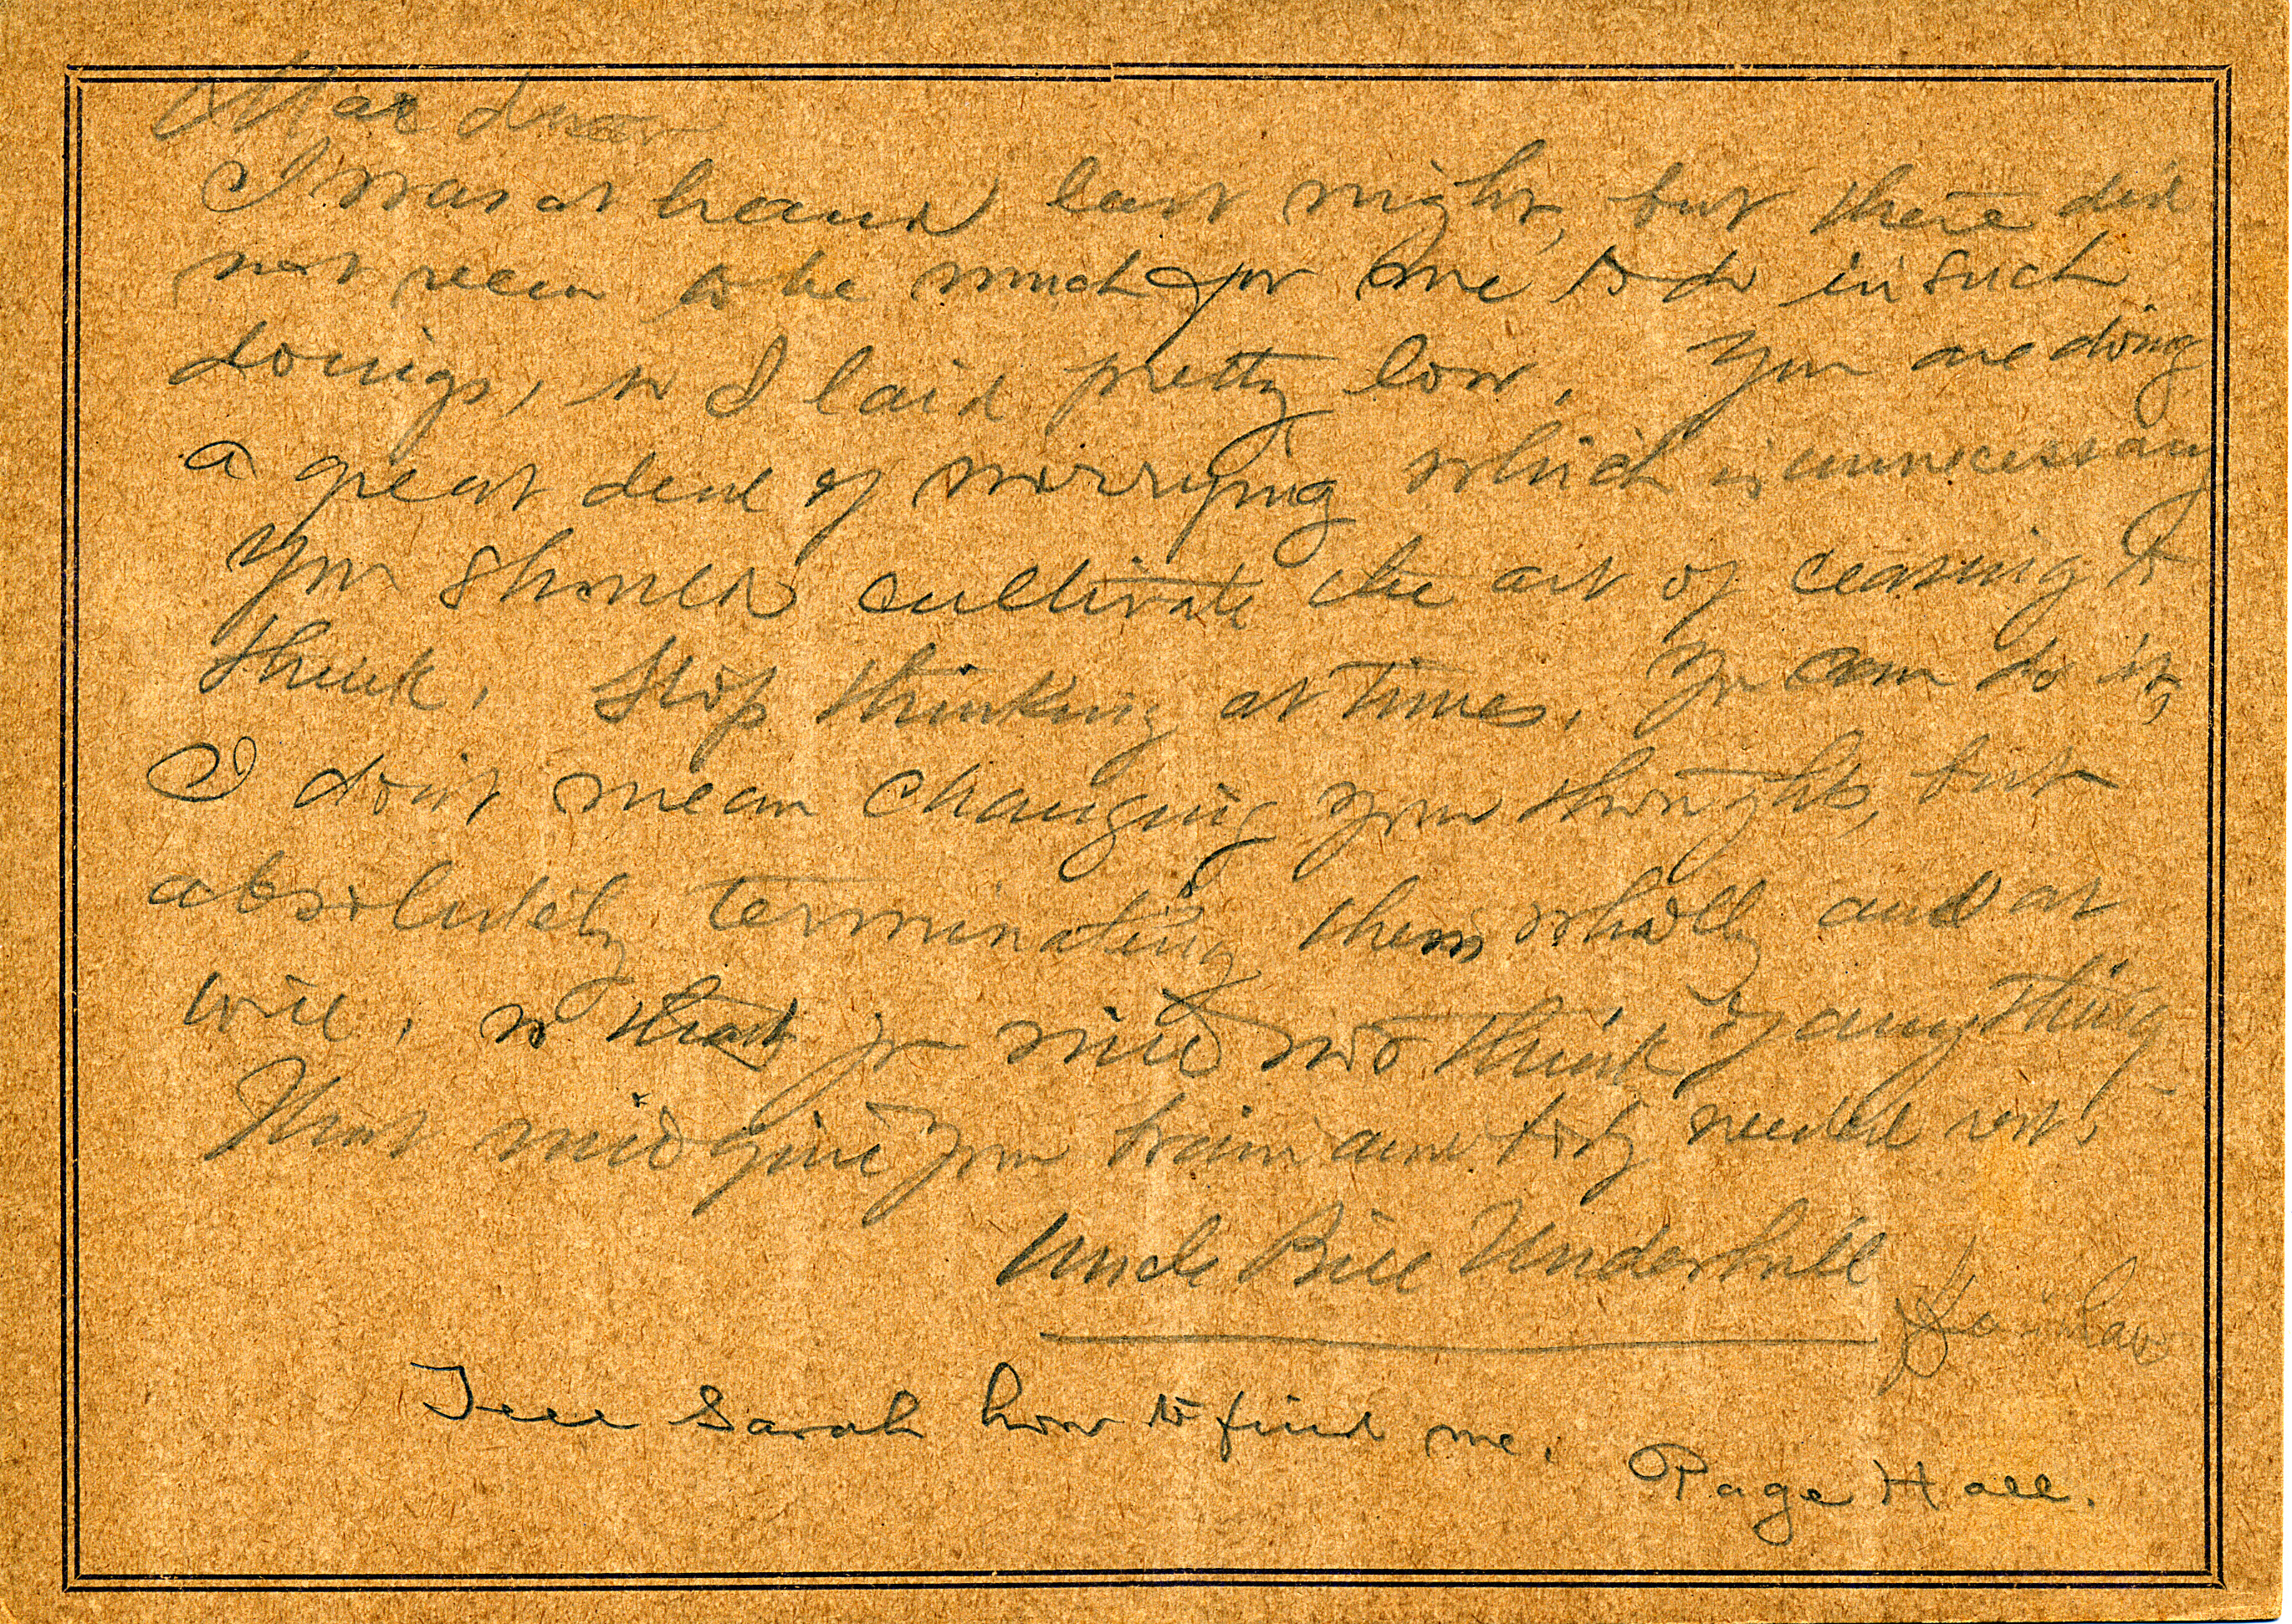 I was at hand last night, but there did
not seem to be much for me to do in such
doings, so I laid pretty low. You are doing
a great deal of worrying which is unnecessary
You should cultivate the art of ceasing to
think. Stop thinking at times. Yu can do it,
I don't mean changing your thoughts, but
absolutely terminating them wholly and at
will, so that yu will not think of anything
That will give your brain and body needed rest.
Uncle Bill Underhill
Tell Sarah how to find me.
Page Hall.